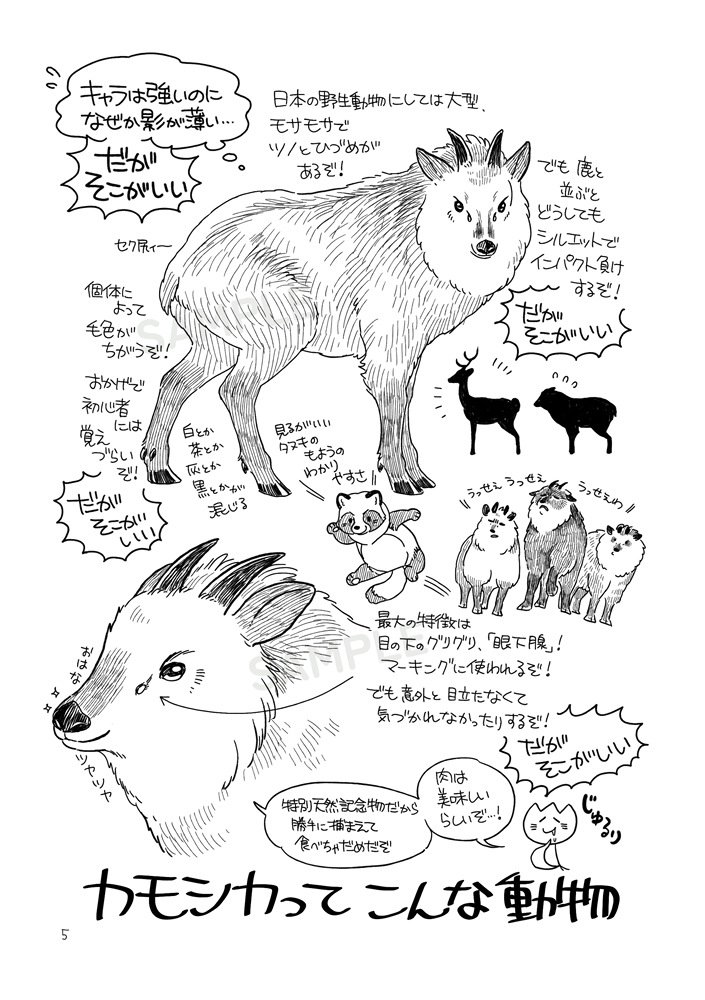 キャラは強いのに
なぜか影が薄い…
だが
そこがいい
日本の野生動物にしては大型、
モサモサで
ツノとひづめが
あるぞ！
でも 鹿と
並ぶと
どうしても
シルエットで
インパクト負け
するぞ！
だが
そこがいい
セク尻ィー
個体に
よって
毛色が
ちがうぞ！
おかげで
初心者
には
覚え
づらい
ぞ！
だが
そこが
いい
白とか
茶とか
灰とか
黒とかが
混じる
見るがいい
タヌキの
もようの
わかり
やすさ
うっせぇ うっせぇ うっせぇわ
最大の特徴は
目の下のグリグリ、「眼下腺」！
マーキングに使われるぞ！
でも意外と目立たなくて
気づかれなかったりするぞ！
だが
そこがいい
おはな
ツヤツヤ
特別天然記念物だから
勝手に捕まえて
食べちゃだめだぞ
肉は
美味しい
らしいぞ…！
じゅるり
カモシカって こんな動物
5
SAMPLE
SAMPLE